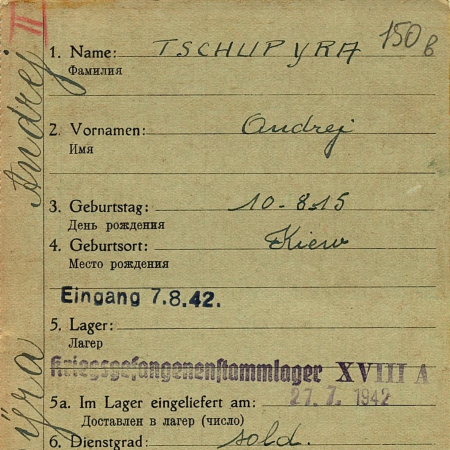 II
150 в
1. Name: TSCHUPYRA
Фамилия
2. Vornamen: Andrej
Имя
3. Geburtstag: 10-8.15
День рождения
4. Geburtsort: Kiew
Место рождения
Eingang 7.8.42.
5. Lager:
Лагер
Kriegsgefangenenstammlager XVIII A
5a. Im Lager eingeliefert am: 27. 7. 1942
Доставлен в лагер (число)
6. Dienstgrad: sold.
Andrej
ÿra